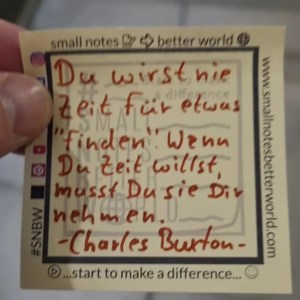 small notes better world
Du wirst nie
Zeit für etwas
"finden". Wenn
Du Zeit willst,
musst Du sie Dir
nehmen.
-Charles Buxton-
#SNBW
www.smallnotesbetterworld.com
...start to make a difference...